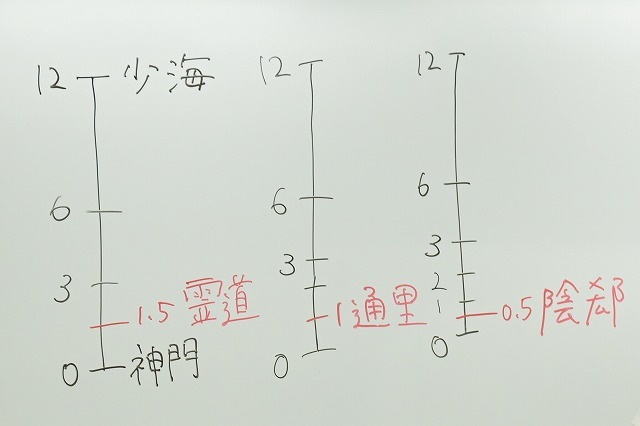 12 少海
6
3
1.5 霊道
0 神門
12
6
3
1 通里
0
12
6
3
2
1
0.5 陰郄
0